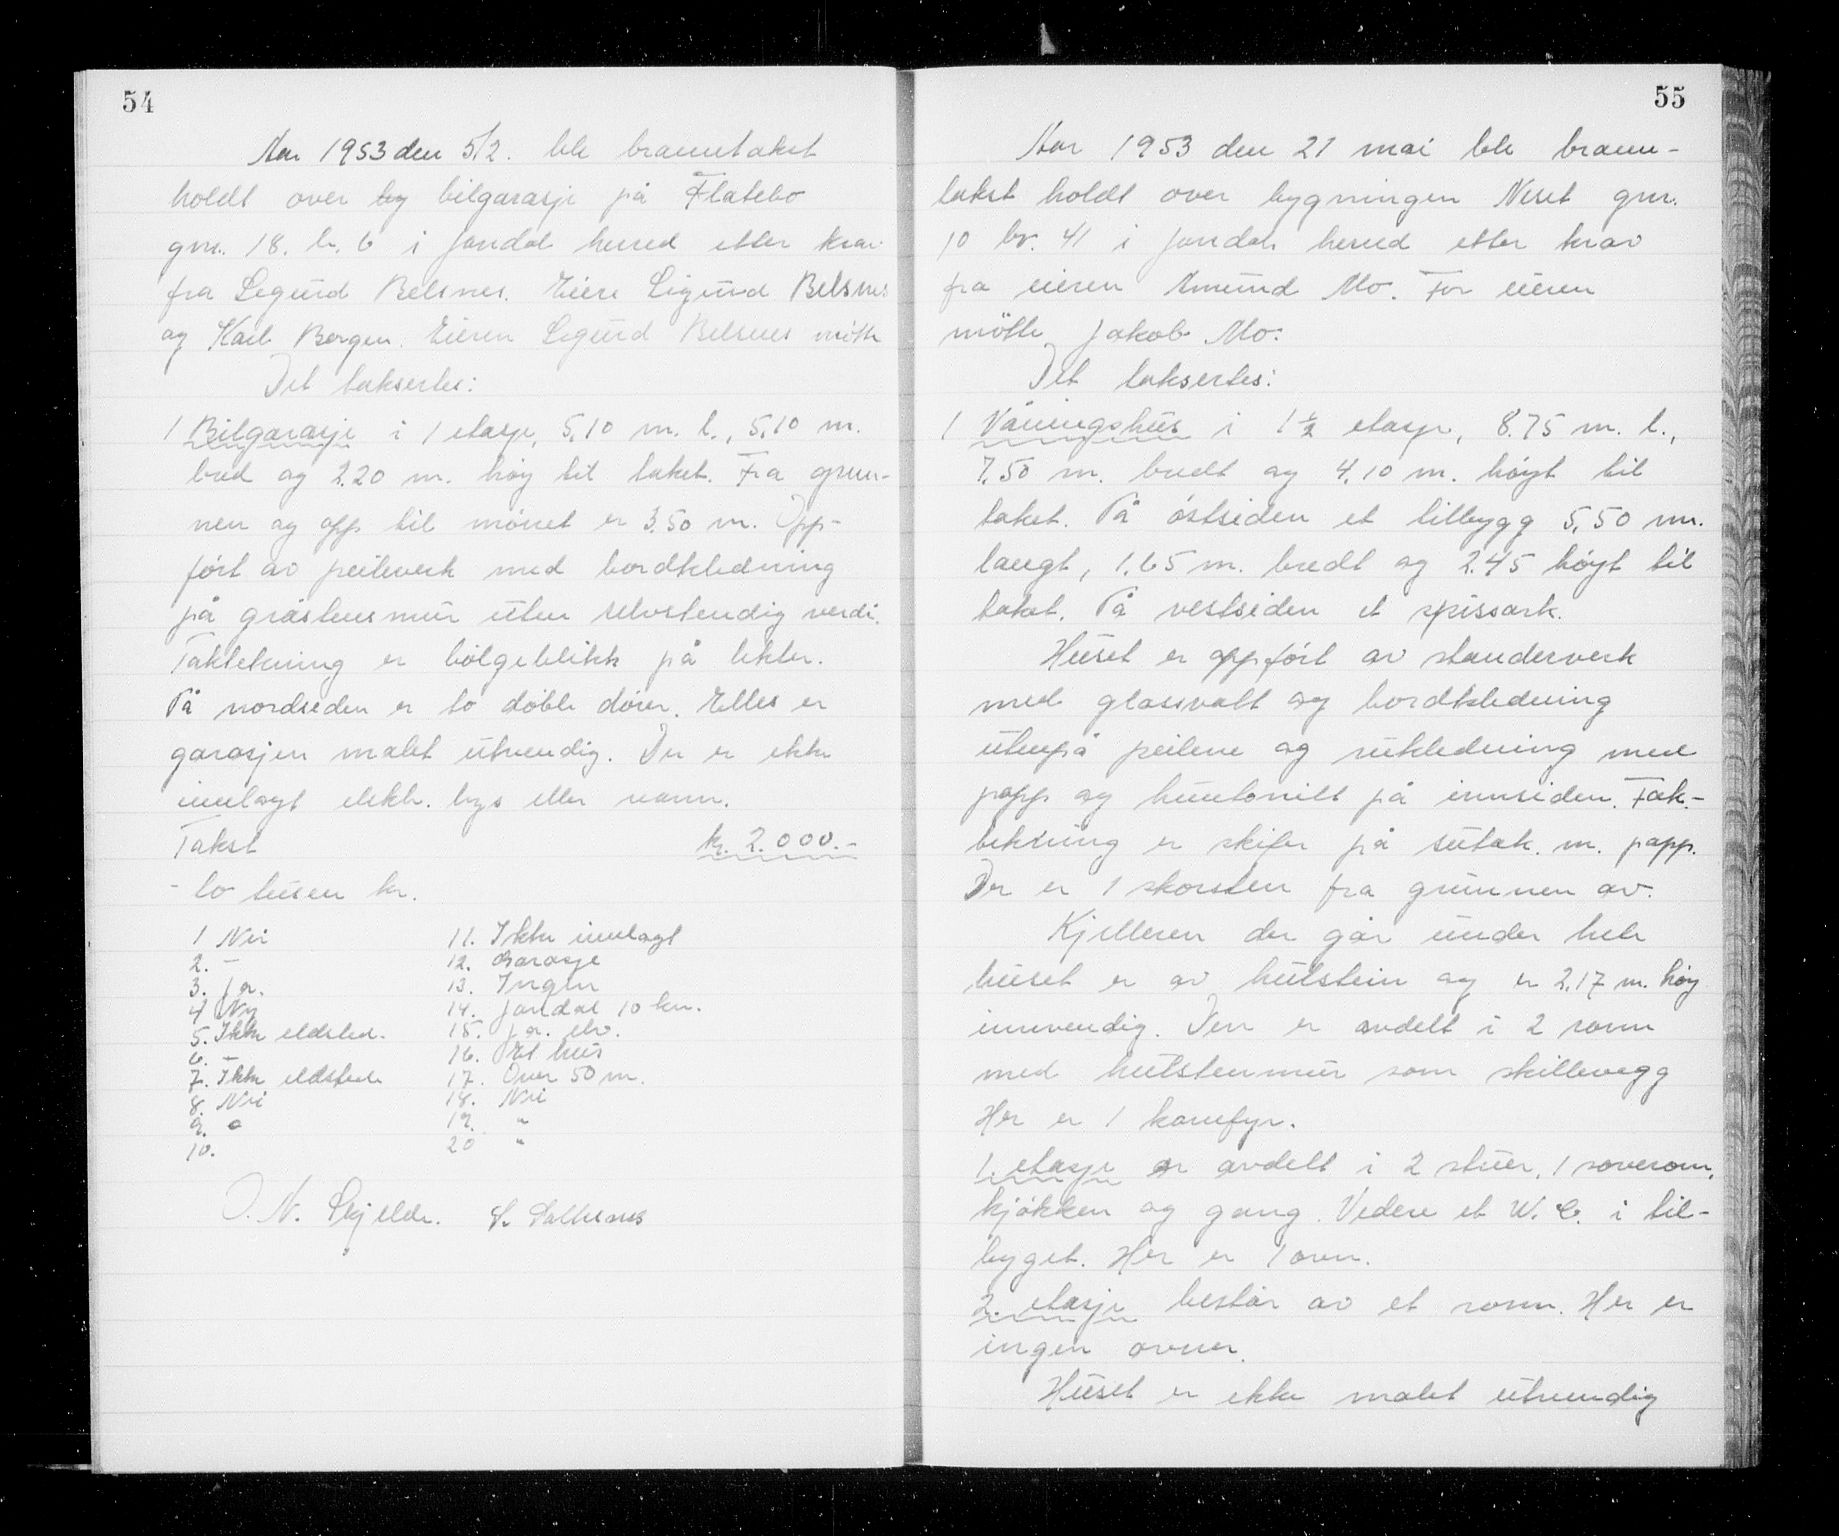 54
Aar 1953 den 5/2. ble branntakst
holdt over by bilgarasje på Flatebø
gnr. 18. br. 6 i Jondal herred etter krav
fra Sigurd Belsnes. Eiere Sigurd Belsnes
og Karl Borgen. Eieren Sigurd Belsnes møtte
Det taksertes:
1 Bilgarasje i 1 etasje, 5,10 m. l., 5,10 m.
bred og 2.20 m. høy til taket. Fra grun-
nen og opp til mønet er 3,50 m. Opp-
ført av peileverk med bordkledning
på gråstensmur uten selvstendig verdi.
Taktekning er bølgeblikk på lekter.
På nordsiden er to doble dører. Elles er
garasjen malet utvendig. Der er ikke
innlagt elektr. lys eller vann.
Takst kr. 2.000.-
- to tusen kr.
1 Nei
2. -
3. Ja.
4 Ny
5. Ikke eldsted.
6. -
7. Ikke eldsted
8. Nei
9. "
10.
11. Ikke innlagt
12. Garasje
13. Ingen
14. Jondal 10 km.
15. Ja. elv.
16. Et hus
17. Over 50 m.
18. Nei
19. "
20 "
O. N. Skjelde. S. Saltesnes
55
Aar 1953 den 21 mai ble brann-
takst holdt over bygningen Neset gnr.
10 br. 41 i Jondal herred etter krav
fra eieren Amund Mo. For eieren
møtte Jakob Mo.
Det taksertes:
1 Våningshus i 1 1/2 etasje, 8.75 m. l.,
7,50 m. bredt og 4,10 m. høyt til
taket. På østsiden et tilbygg 5,50 m.
langt, 1,65 m. bredt og 2.45 høyt til
taket. På vestsiden et spissark.
Huset er oppført av standerverk
med glassvatt og bordkledning
utenpå peilene og sukledning med
papp og huntonitt på innsiden. Tak-
tekning er skifer på sutak. m. papp.
Der er 1 skorsten fra grunnen av.
Kjelleren der går under hele
huset er av hulstein og er 2,17 m. høy
innvendig. Den er avdelt i 2 romm
med hulstenmur som skillevegg
Her er 1 komfyr.
1. etasje er avdelt i 2 stuer, 1 soverom,
kjøkken og gang. Videre et W. C. i til-
byget. Her er 1 ovn.
2. etasje består av et romm. Her er
ingen ovner.
Huset er ikke malet utvendig